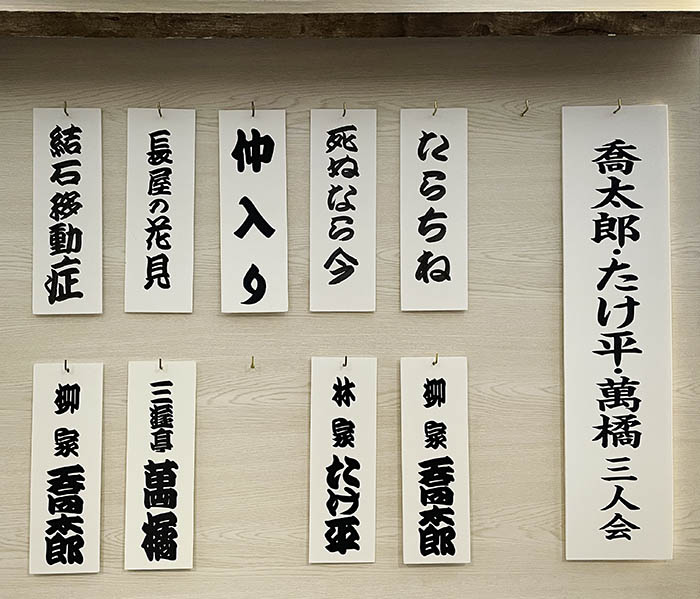 喬太郎・たけ平・萬橘 三人会
たらちね
柳家 喬太郎
死ぬなら今
林家 たけ平
仲入り
長屋の花見
三遊亭 萬橘
結石移動症
柳家 喬太郎